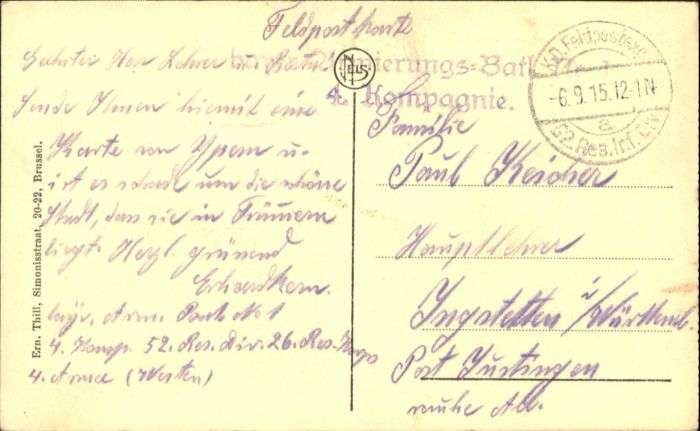 Feldpostkarte
Geehrter Herr Lehrer u.
Sende Ihnen hiermit eine
Karte von Ypern u.
ist es schade um die schöne
Stadt, dass sie in Trümmern
liegt. Herzl. grüssend
Erhard Kern.
bayr. Arm. Batl. No 1
4. Komp. 52. Res. Div. 26. Res. Korps
4. Armee (Westen)
Ern. Thill, Simonisstraat, 20-22, Brussel.
NELS
Armierungs-Batl.
4. Kompagnie.
K.D. Feldpostexp.
-6.9.15.12-1N
a
52. Res. Inf. Div.
Familie
Paul Keicher
Hauptlehrer
Ingstetten i/Württemb.
Post Justingen